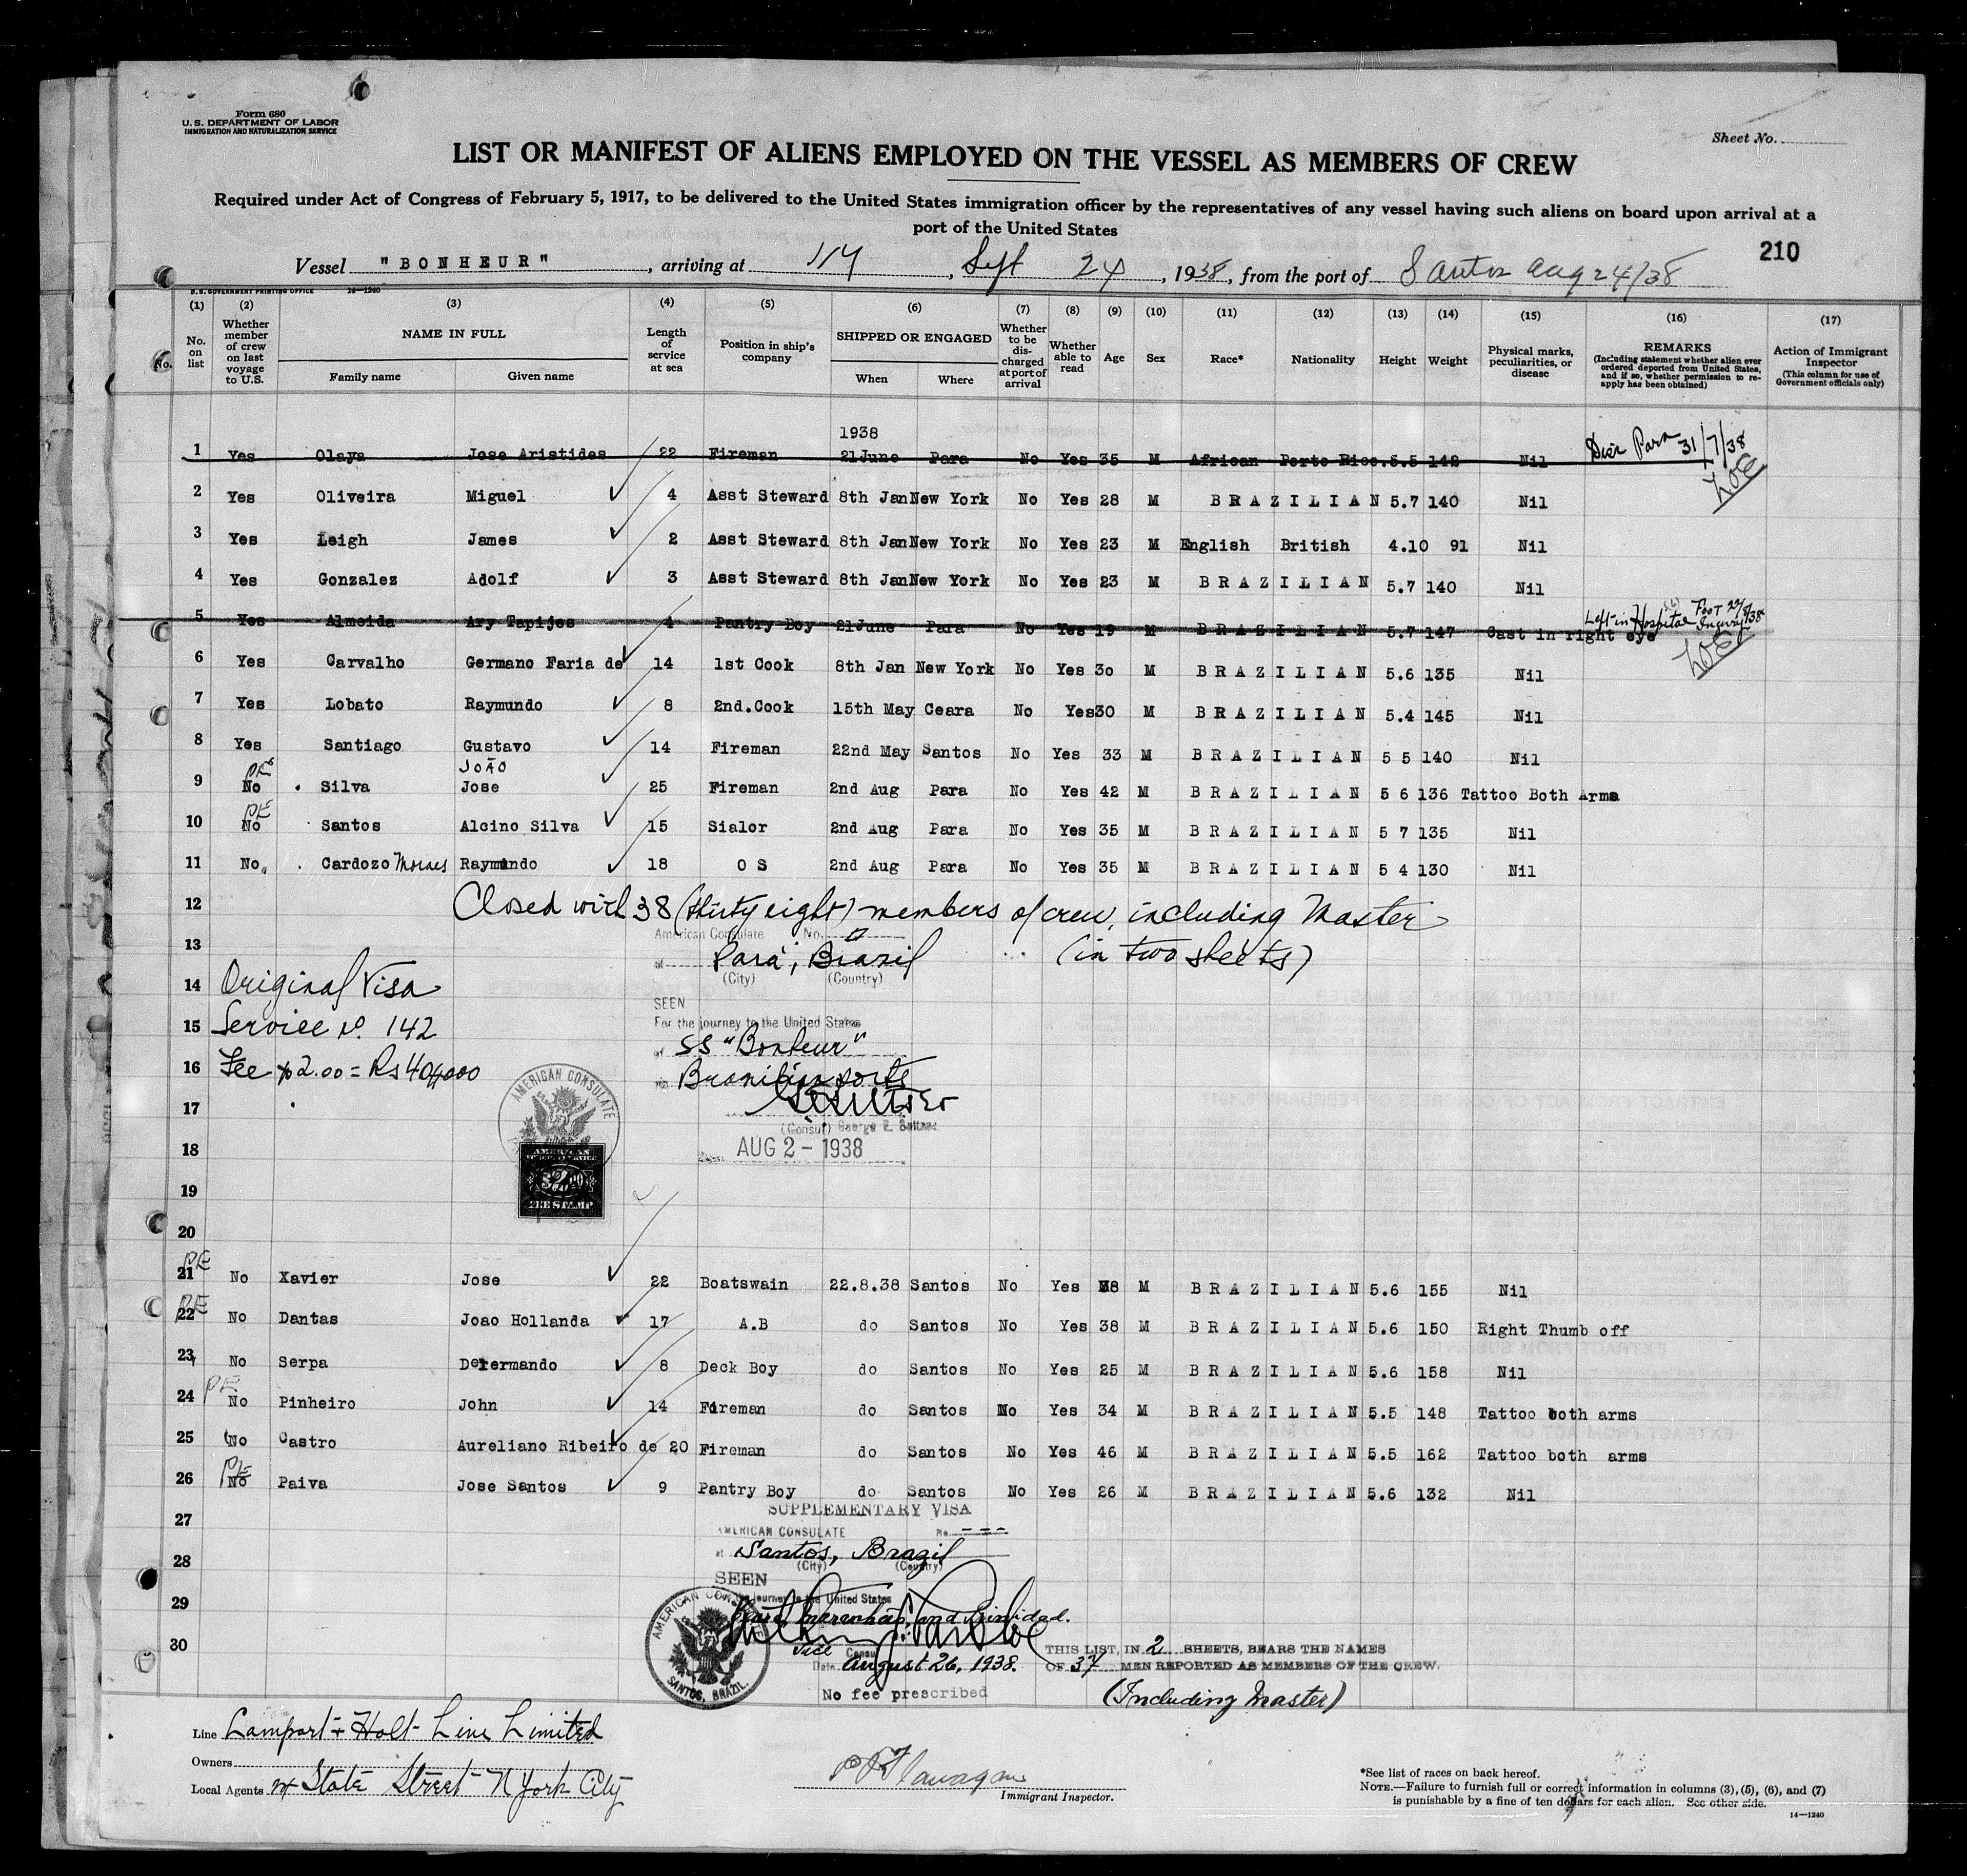 Form 680
U. S. DEPARTMENT OF LABOR
IMMIGRATION AND NATURALIZATION SERVICE
Sheet No.
LIST OR MANIFEST OF ALIENS EMPLOYED ON THE VESSEL AS MEMBERS OF CREW
Required under Act of Congress of February 5, 1917, to be delivered to the United States immigration officer by the representatives of any vessel having such aliens on board upon arrival at a
port of the United States
210
Vessel "BONHEUR", arriving at NY, Sept 24, 1938, from the port of Santos Aug 24/38
U. S. GOVERNMENT PRINTING OFFICE 14—1240
(1) (2) (3) (4) (5) (6) (7) (8) (9) (10) (11) (12) (13) (14) (15) (16) (17)
No. No. on list Whether member of crew on last voyage to U.S. NAME IN FULL Family name Given name Length of service at sea Position in ship's company SHIPPED OR ENGAGED When Where Whether to be discharged at port of arrival Whether able to read Age Sex Race* Nationality Height Weight Physical marks, peculiarities, or disease REMARKS (Including statement whether alien ever ordered deported from United States, and if so, whether permission to reapply has been obtained) Action of Immigrant Inspector (This column for use of Government officials only)
1938
1 Yes Olaya Jose Aristides 22 Fireman 21June Para No Yes 35 M African Porto Rico. 5.5 142 Nil Para 31/7/38
2 Yes Oliveira Miguel 4 Asst Steward 8th Jan New York No Yes 28 M BRAZILIAN 5.7 140 Nil
3 Yes Leigh James 2 Asst Steward 8th Jan New York No Yes 23 M English British 4.10 91 Nil
4 Yes Gonzalez Adolf 3 Asst Steward 8th Jan New York No Yes 23 M BRAZILIAN 5.7 140 Nil
5 Yes Almeida Ary Tapijos 4 Pantry Boy 21June Para No Yes 19 M BRAZILIAN 5.7 147 Cast in right eye Left in Hospital Foot Injury
6 Yes Carvalho Germano Faria de 14 1st Cook 8th Jan New York No Yes 30 M BRAZILIAN 5.6 135 Nil
7 Yes Lobato Raymundo 8 2nd.Cook 15th May Ceara No Yes 30 M BRAZILIAN 5.4 145 Nil
8 Yes Santiago Gustavo 14 Fireman 22nd May Santos No Yes 33 M BRAZILIAN 5 5 140 Nil
PE JOÃO
9 No Silva Jose 25 Fireman 2nd Aug Para No Yes 42 M BRAZILIAN 5 6 136 Tattoo Both Arms
PE
10 No Santos Alcino Silva 15 Sialor 2nd Aug Para No Yes 35 M BRAZILIAN 5 7 135 Nil
11 No Cardozo Moraes Raymundo 18 O S 2nd Aug Para No Yes 35 M BRAZILIAN 5 4 130 Nil
12 Closed with 38 (thirty eight) members of crew, including Master
American Consulate No.
13 at Pará, Brazil (in two sheets)
(City) (Country)
14 Original Visa
SEEN
15 Service No. 142
For the journey to the United States
of SS "Bonheur"
16 Fee $2.00 = Rs 40$000
via Brazilian ports
AMERICAN CONSULATE
17
(Consul) George E. Seltzer
18 AUG 2 - 1938
AMERICAN
$2.00
FEE STAMP
19
20
PE
21 No Xavier Jose 22 Boatswain 22.8.38 Santos No Yes 38 M BRAZILIAN 5.6 155 Nil
PE
22 No Dantas Joao Hollanda 17 A.B do Santos No Yes 38 M BRAZILIAN 5.6 150 Right Thumb off
23 No Serpa Determando 8 Deck Boy do Santos No Yes 25 M BRAZILIAN 5.6 158 Nil
PE
24 No Pinheiro John 14 Fireman do Santos No Yes 34 M BRAZILIAN 5.5 148 Tattoo both arms
25 No Castro Aureliano Ribeiro de 20 Fireman do Santos No Yes 46 M BRAZILIAN 5.5 162 Tattoo both arms
PE
26 No Paiva Jose Santos 9 Pantry Boy do Santos No Yes 26 M BRAZILIAN 5.6 132 Nil
SUPPLEMENTARY VISA
27
AMERICAN CONSULATE No. ---
28 at Santos, Brazil
(City) (Country)
SEEN
29 journey to the United States
Ceara, Maranhao, and Trinidad.
30
THIS LIST, IN 2 SHEETS, BEARS THE NAMES
Vice Consul
OF 37 MEN REPORTED AS MEMBERS OF THE CREW.
Date August 26, 1938.
AMERICAN CONSULATE SANTOS, BRAZIL
No fee prescribed
(Including Master)
Line Lamport & Holt Line Limited
Owners
Local Agents State Street N York City
Immigrant Inspector.
*See list of races on back hereof.
NOTE.—Failure to furnish full or correct information in columns (3), (5), (6), and (7)
is punishable by a fine of ten dollars for each alien. See other side.
14—1240